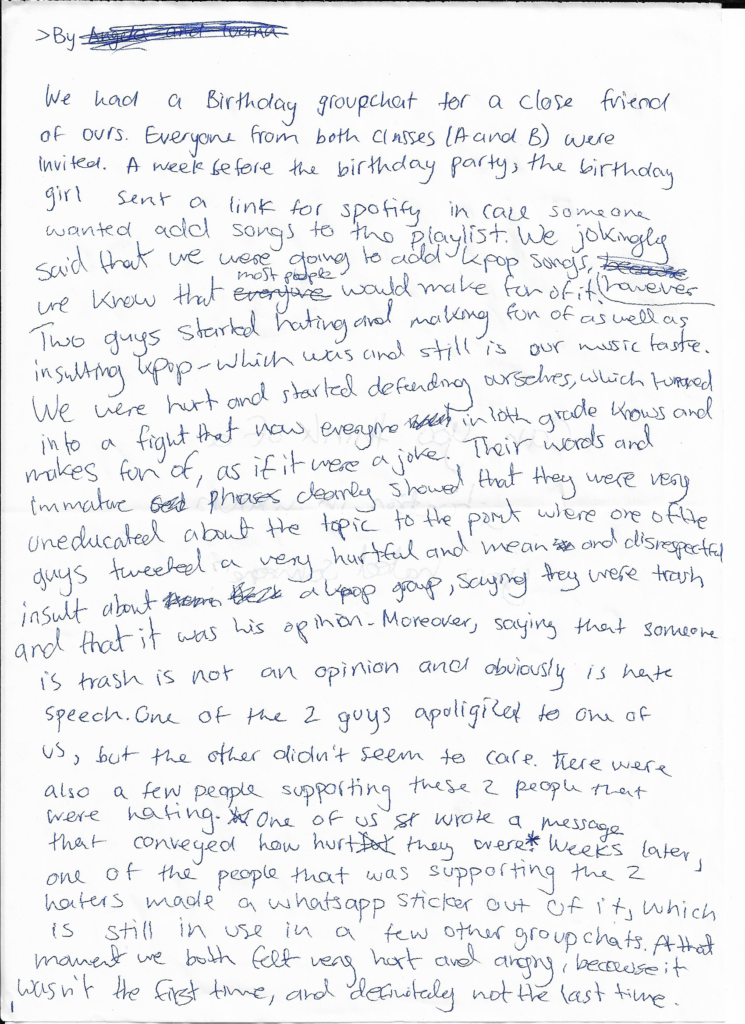 >By
We had a Birthday groupchat for a close friend
of ours. Everyone from both classes (A and B) were
invited. A week before the birthday party, the birthday
girl sent a link for spotify in case someone
wanted add songs to the playlist. We jokingly
said that we were going to add kpop songs, because
most people
we know that everyone would make fun of it. however
Two guys started hating and making fun of as well as
insulting kpop - which was and still is our music taste.
We were hurt and started defending ourselves, which turned
into a fight that now everyone in 10th grade knows and
makes fun of, as if it were a joke. Their words and
immature phrases clearly showed that they were very
uneducated about the topic to the point where one of the
guys tweeted a very hurtful and mean and disrespectful
insult about a kpop group, saying they were trash
and that it was his opinion. Moreover, saying that someone
is trash is not an opinion and obviously is hate
speech. One of the 2 guys apoligized to one of
us, but the other didn't seem to care. There were
also a few people supporting these 2 people that
were hating. One of us wrote a message
that conveyed how hurt they were* Weeks later,
one of the people that was supporting the 2
haters made a whatsapp sticker out of it, which
is still in use in a few other groupchats. At that
moment we both felt very hurt and angry, because it
wasn't the first time, and definitely not the last time.